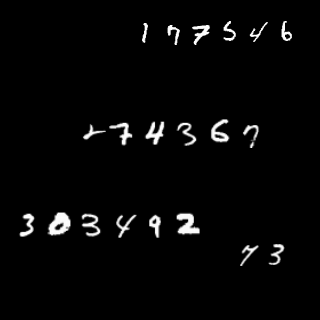 177546
274367
303492
73